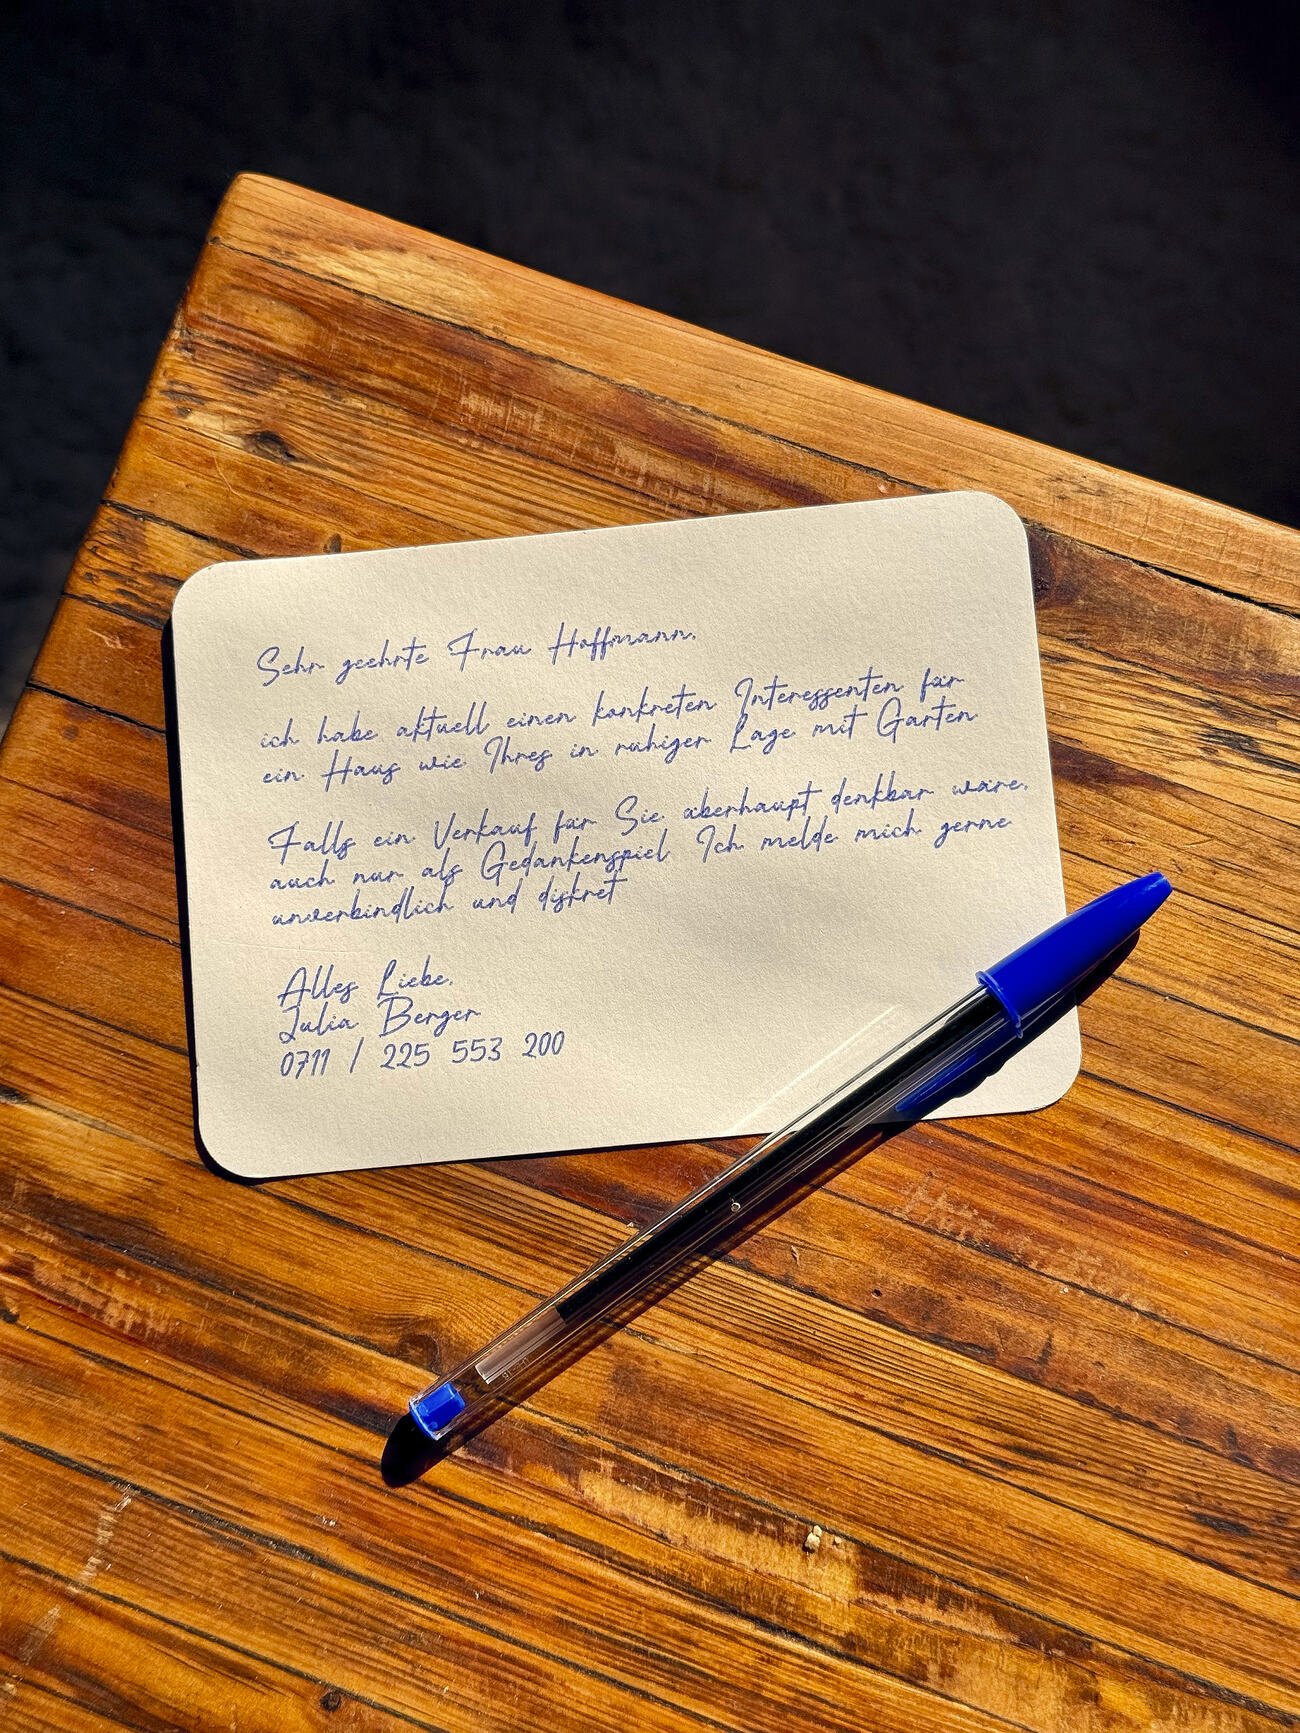 Sehr geehrte Frau Hoffmann,
ich habe aktuell einen konkreten Interessenten für
ein Haus wie Ihres in ruhiger Lage mit Garten
Falls ein Verkauf für Sie überhaupt denkbar wäre,
auch nur als Gedankenspiel. Ich melde mich gerne
unverbindlich und diskret
Alles Liebe,
Julia Berger
0711 / 225 553 200